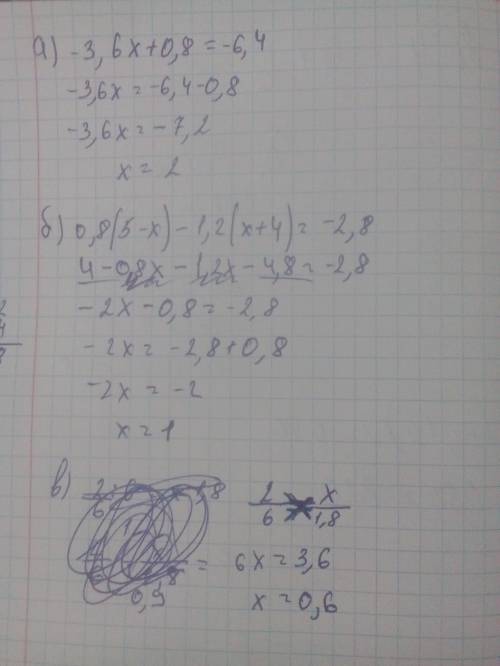 а) -3,6x+0,8=-6,4
-3,6x=-6,4-0,8
-3,6x=-7,2
x=2
б) 0,8(5-x)-1,2(x+4)=-2,8
4-0,8x-1,2x-4,8=-2,8
-2x-0,8=-2,8
-2x=-2,8+0,8
-2x=-2
x=1
в) 2/6 = x/1,8
6x=3,6
x=0,6